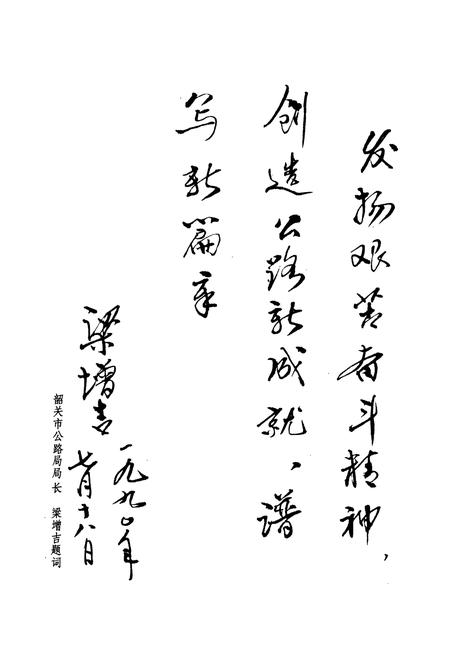 发扬艰苦奋斗精神，
创造公路新成就、谱
写新篇章
梁增吉
一九九〇年
七月十八日
韶关市公路局局长 梁增吉题词